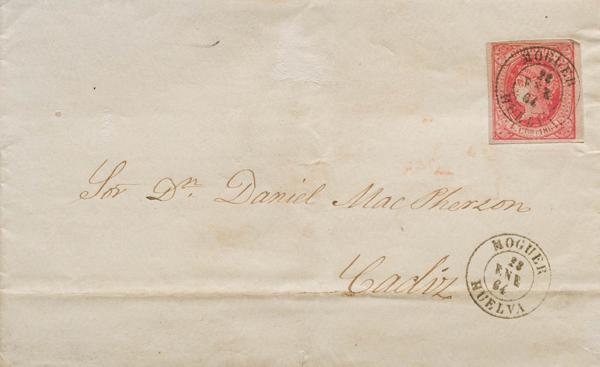 MOGUER
28
ENE
64
HUELVA
Sor Dn. Daniel MacPherzon
Cadiz
MOGUER
28
ENE
64
HUELVA